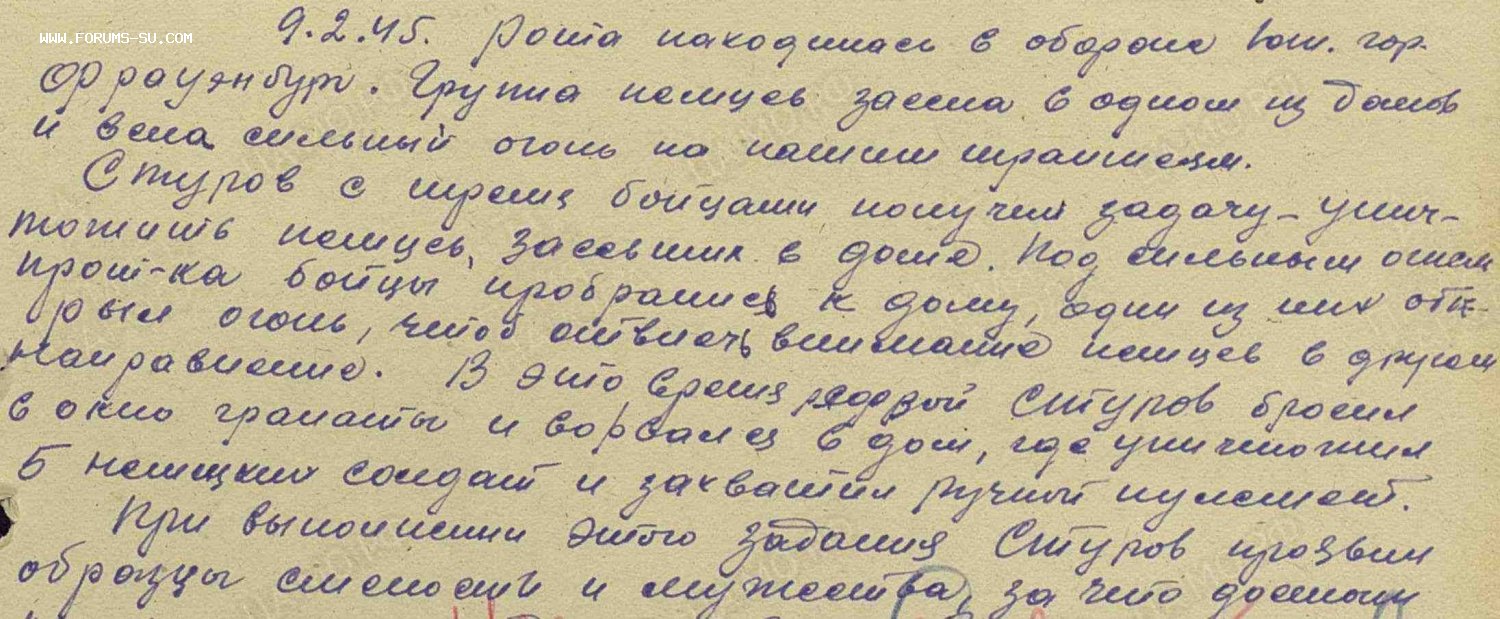 WWW.FORUMS-SU.COM
9.2.45. Рота находилась в обороне Юж. гор.
Фрауэнбург. Группа немцев засела в одном из домов
и вела сильный огонь по нашим траншеям.
Стуров с тремя бойцами получил задачу – унич-
тожить немцев, засевших в доме. Под сильным огнем
прот-ка бойцы пробрались к дому, один из них отк-
рыл огонь, чтоб отвлечь внимание немцев в другом
направление. В это время рядовой Стуров бросил
в окно гранаты и ворвался в дом, где уничтожил
5 немецких солдат и захватил ручной пулемет.
При выполнении этого задания Стуров проявил
образцы смелости и мужества, за что достоин